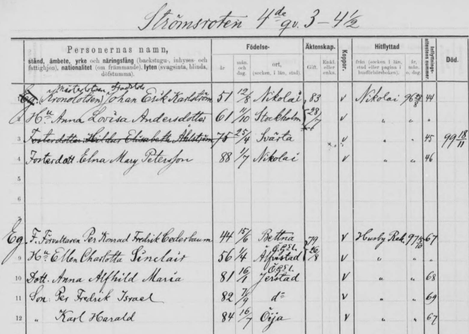 Strömsroten 4de qv. 3 - 4 1/2
Personernas namn,
stånd, ämbete, yrke och näringsfång (backstugu-, inhyses- och
fattighjon), nationalitet (om främmande), lyten (svagsinta, blinda,
döfstumma).
Födelse-
Äktenskap.
Koppor.
Hitflyttad
Död.
år
ort,
Johan Erik Karlström 51 12/8 Nikolai 83 v Nikolai 96 44
Hu Anna Lovisa Andersdotter 61 7/10 Stockholm v
3 Fosterdotter Elisabeth Ahlström 75 25/4 Svärta v 45 99 18/11
4 Fosterdott Elna Mary Peterson 88 1/7 Nikolai v 46
Eg. F. Förvaltaren Per Konrad Fredrik Cederbaum 44 15/6 Bettna 79 v Husby Rek. 97 67
9 Hu Ellen Charlotta Sinclair 56 1/4 v
10 Dott. Anna Alfhild Maria 81 16/9 Jerstad v 68
11 Son Per Fredrik Israel 82 7/9 do v 69
12 " Karl Harald 84 16/7 Öija v 67